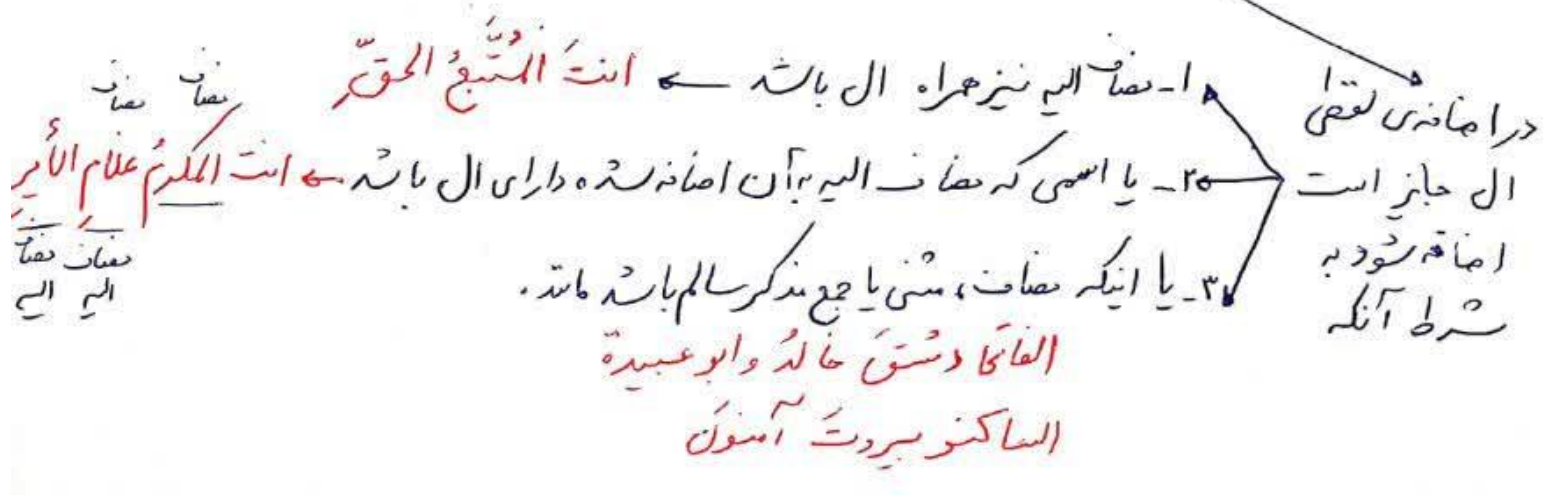 در اضافه‌ی لفظی
ال جایز است
اضافه شود به
شرط آنکه
۱- مضاف الیه نیز همراه ال باشد ← انتَ المُتَّبِعُ الحقِّ
۲- یا اسمی که مضاف الیه به آن اضافه شده دارای ال باشد ← انتَ المکرمُ غلامِ الأمیرِ
مضاف مضاف
مضاف الیه مضاف الیه
۳- یا اینکه مضاف، مثنی یا جمع مذکر سالم باشد مانند.
الفاتحا دمشقَ خالدُ وابو عبیدة
الساکنو بیروتَ آمنونَ